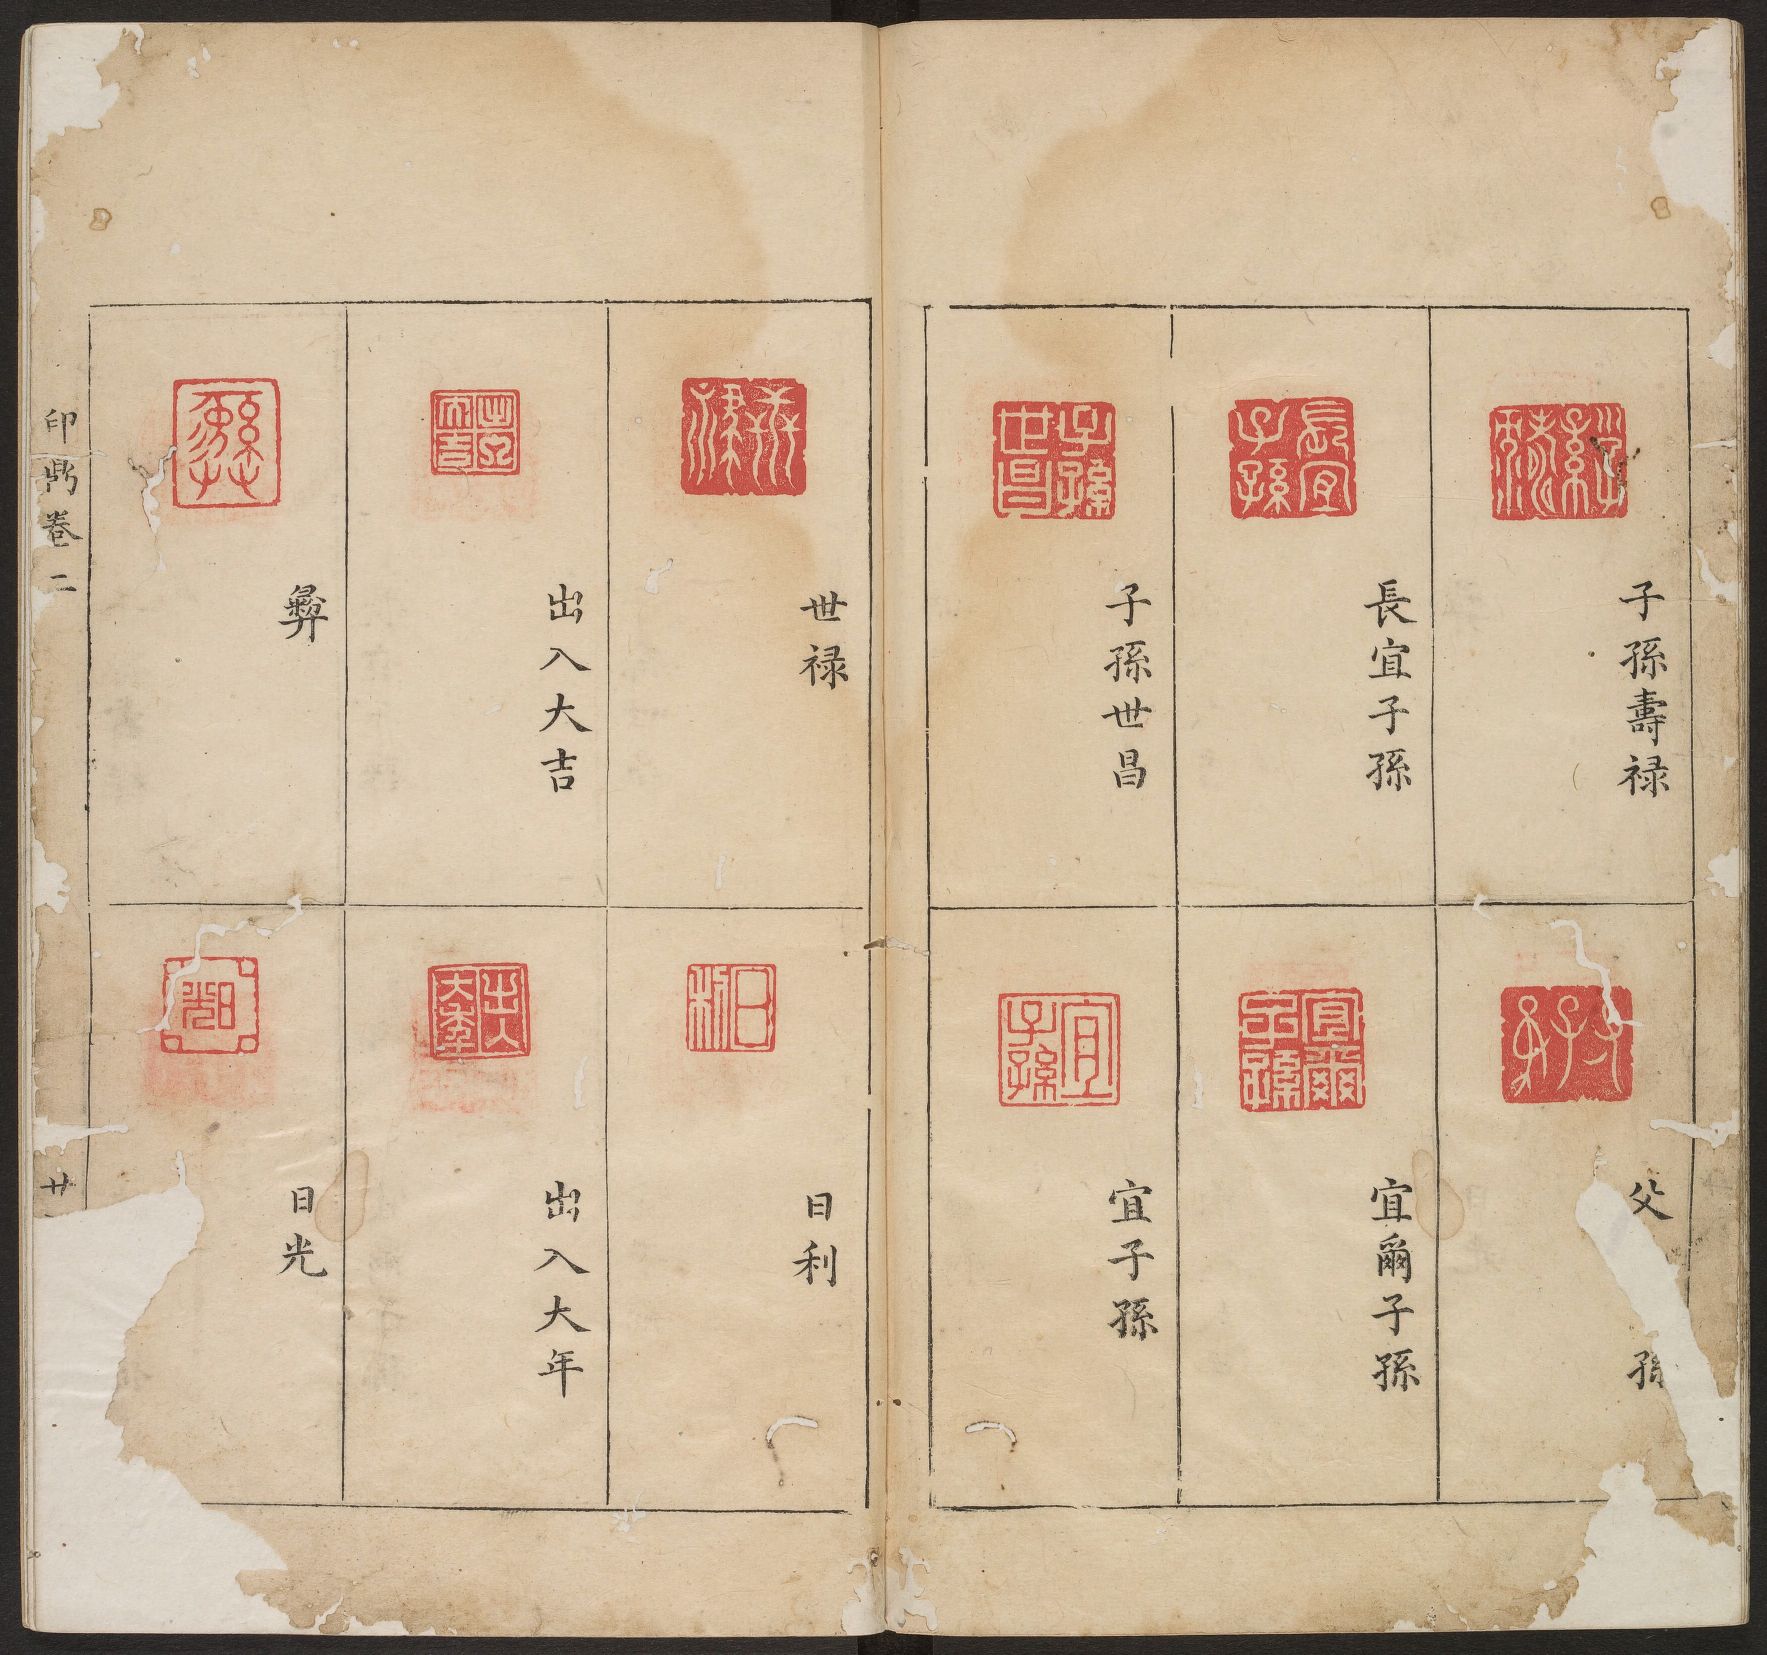 子孫壽禄
父
孫
長宜子孫
宜爾子孫
子孫世昌
宜子孫
世禄
日利
出入大吉
出入大年
彞
日光
印鼎卷二
廿